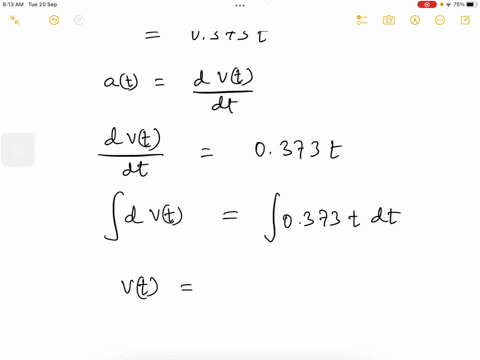 6:13 AM Tue 20 Sep
75%
=
a(t) = d v(t) / dt
d v(t) / dt = 0.373 t
∫ d v(t) = ∫ 0.373 t dt
v(t) =